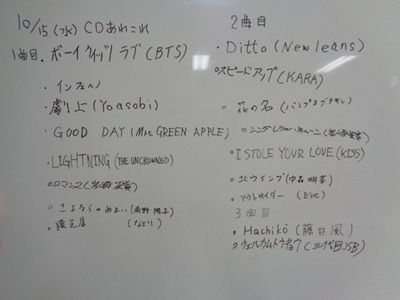 10/15(水) CDあれこれ
1曲目.ボーイウィズラブ(BTS)
・インフェルノ
・劇上(Yoasobi)
・GOOD DAY (Mrs. GREEN APPLE)
・LIGHTNING (THE UNCROWNED)
ロマンス(岩崎宏美)
・さよならのめまい(南野陽子)
・猿芝居 (なとり)
2曲目
・Ditto (New Jeans)
スピードアップ(KARA)
・花の名(バンプオブチキン)
I STOLE YOUR LOVE (KISS)
・北ウイング(中森明菜)
・アウトサイダー (Eve)
3曲目
・Hachikō (藤井風)
(三代目JSB)